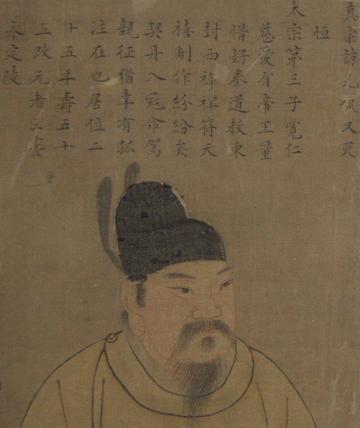 真宗諱元侃又更
恒
太宗第三子寬仁
慈愛有帝王量
惜好奉道教東
封西祥符天
禧制作紛紛矣
契丹入寇命駕
親征幸有孤
注在也居位二
十五年壽五十
五改元者五葬
永定陵